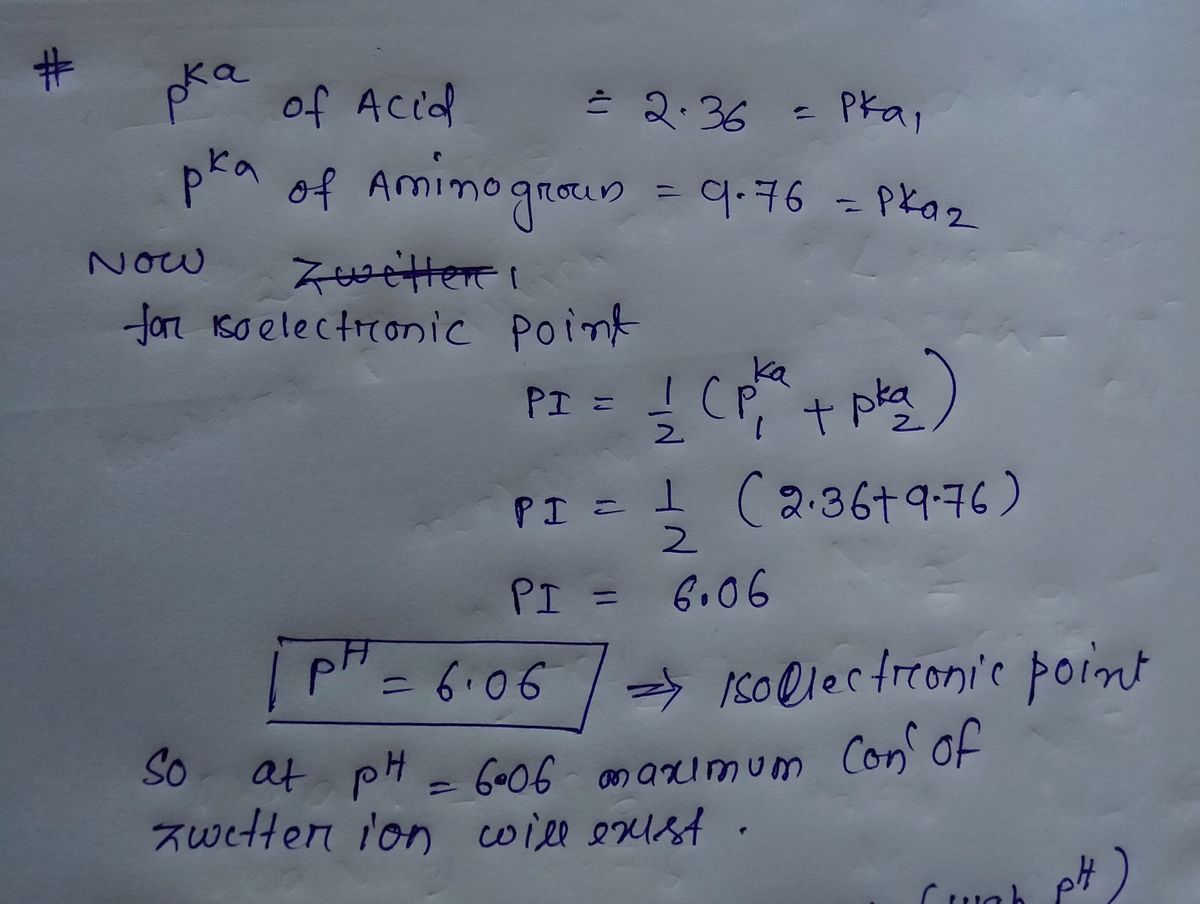 # pka of Acid = 2.36 = Pka1
pka of Aminogroup = 9.76 = Pka2
Now Zwitter
for isoelectronic point
PI = 1/2 (pka1 + pka2)
PI = 1/2 (2.36+9.76)
PI = 6.06
PH = 6.06 ⇒ isoelectronic point
So at pH = 6.06 maximum conc of
zwitter ion will exist.
pH)